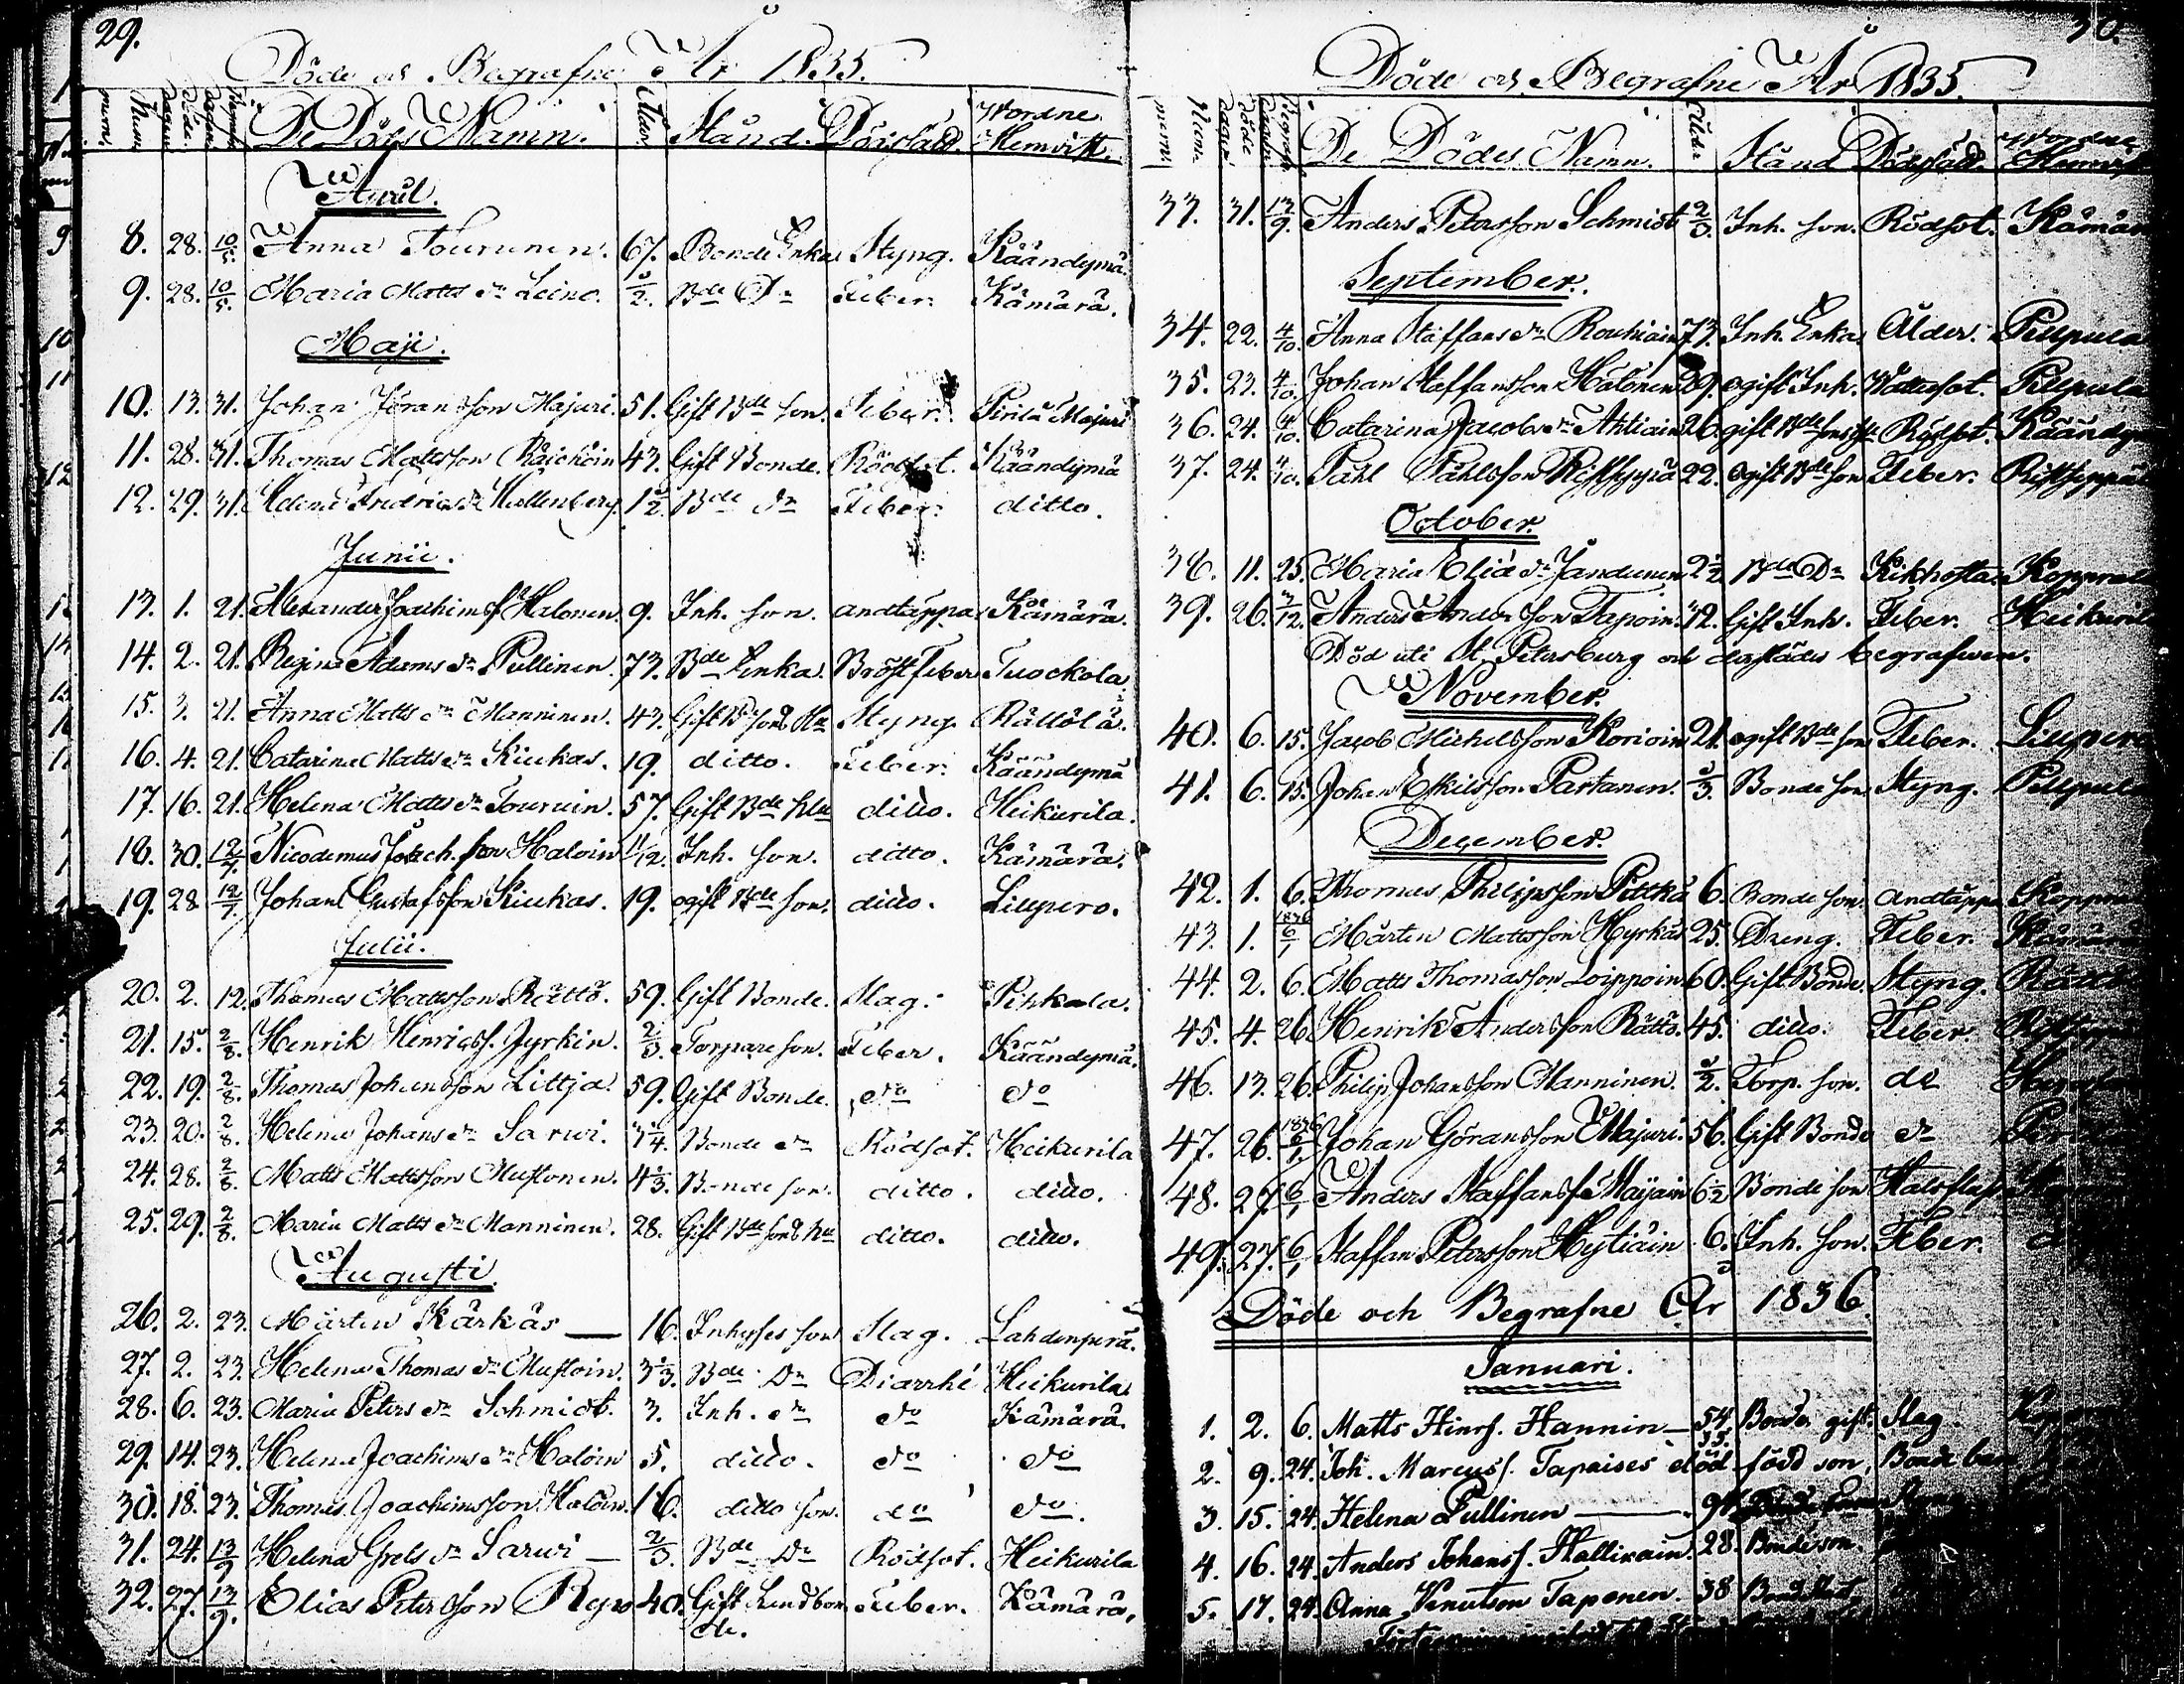 29.
Döde och Begrafne År 1835.
Num. Döde De Dödas Namn. Ålder Stånd. Dödssätt. Hemvist.
April.
8. 28. 10/5. Anna Tourunen. 67. Bonde Enka Styng. Käändymä.
9. 28. 10/5. Maria Matts dr Leino. 1/2. Bde Dr Feber. Kämärä.
Maji.
10. 13. 31. Johan Jöransson Majuri. 51. Gift Bde son. Feber. Pirilä Majuri
11. 28. 31. Thomas Mattsson Räicköin 43. Gift Bonde. Rödsot. Käändymä
12. 29. 31. Fredrics dr Mullenberg. 1 1/2. Bde dr Feber. ditto.
Junii.
13. 1. 21. Alexander Joachims f. Halonen. 9. Inh. son. andtäppa Kämärä.
14. 2. 21. Regina Adams dr Pullinen. 73. Bde Enka. Bröstfeber Tuockola.
15. 3. 21. Anna Matts dr Manninen. 43. Gift Bd sons Hu Styng Rättölä.
16. 4. 21. Catarina Matts dr Kiukas. 19. ditto. Feber. Käändymä
17. 16. 21. Helena Matts dr Touruin. 57. Gift Bde hu ditto. Heikurila.
18. 30. 12/7. Nicodemus Joach. son Haloin 1/12. Inh. son. ditto. Kämärä.
19. 28 12/7. Johan Gustafsson Kiukas. 19. ogift Bde son. ditto. Liupero.
Julii.
20. 2. 12. Thomas Mattsson Rättö. 59. Gift Bonde. Slag. Pihkala.
21. 15. 2/8. Henrik Henricss. Jyrkin. 2/3. Torpare son. Feber. Käändymä.
22. 19. 2/8. Thomas Johansson Littja. 59. Gift Bonde. do do
23. 20. 2/8. Helena Johans dr Sarwi. 3 1/4. Bonde dr Rödsot. Heikurila
24. 28. 2/8. Matts Mattsson Mustonen. 4 1/3. Bonde son. ditto. ditto.
25. 29. 2/8. Maria Matts dr Manninen. 28. Gift Bde sons hu ditto. ditto.
Augusti.
26. 2. 23. Mårten Kärkäs 16. Inhyses son Slag. Lahdenperä.
27. 2. 23. Helena Thomas dr Mustoin. 3 1/3. Bde Dr Diarrhé Heikurila
28. 6. 23. Maria Peters dr Schmidt. 3. Inh. dr do Kämärä.
29. 14. 23. Helena Joachims dr Haloin 5. ditto. do do
30. 18. 23. Thomas Joachimsson Haloin. 16. ditto son. do do.
31. 24. 13/9 Helena Grels dr Sarwi 2/3. Bde Dr Rödsot. Heikurila
32. 27. 13/9. Elias Petersson Repo 40. Gift Landbon Feber. Kämärä.
de.
30.
Döde och Begrafne År 1835.
Num. Döde De Dödes Namn. Ålder Stånd Dödssätt.
33. 31. 13/9. Anders Petersson Schmidt 2/3. Inh. son. Rödsot.
September.
34. 22. 4/10. Anna Staffans dr 73. Inh. Enka Ålder. Pillpula
35. 23. 4/10. Johan Staffansson Halonen 29. ogift Inh. Wattusot. Pillpula
36. 24. 4/10. Catarina Jacobs dr Ahtiain 26. gift Bde Rödsot.
37. 24. 4/10. Påhl Påhlsson Ristseppä 22. ogift Bde son Feber. Ristseppälä
October.
38. 11. 25. Maria Elia dr Jandunen 2 1/2 Bde Dr Kikhosta.
39. 26. 3/12. Anders Andersson Tapoin. 32. Gift Inh. Feber. Heikurila
Död uti St. Petersburg och derstädes begrafwen.
November.
40. 6. 15. Jacob Michelsson Korioin 21. ogift Bde son Feber. Liupero
41. 6. 15. Johan Eskilsson Partanen. 1/3. Bonde son Styng. Pillpula
December.
42. 1. 6. Thomas Philipsson Pittkä 6. Bonde son. andtäppa
43. 1. 1836 6/1 Mårten Mattsson Hyrkäs 25. Dreng. Feber.
44. 2. 6. Matts Thomasson Loippoin 60. Gift Bonde. Styng.
45. 4. 26 Henrik Andersson Rättö. 45. ditto. Feber.
46. 13. 26. Philip Johansson Manninen. 1/2. Torp. son. do
47. 26. 1836 6/1. Johan Göransson Majuri. 56. Gift Bonde do
48. 27. 6/1 Anders Staffanss. 6 1/2 Bonde son
49. 27. 6/1 Staffan Petersson Hytiäin 6. Inh. son. Feber.
Döde och Begrafne År 1836.
Januari.
1. 2. 6. Matts Hinrs. Hannin 54. Bonde gift. Slag
2. 9. 24. Joh. Marcuss. Tapaises död född son, Bonde
3. 15. 24. Helena Pullinen 94.
4. 16. 24. Anders Johanss. Hallikain. 28. Bonde son.
5. 17. 24. Anna Knutson Taponen. 38